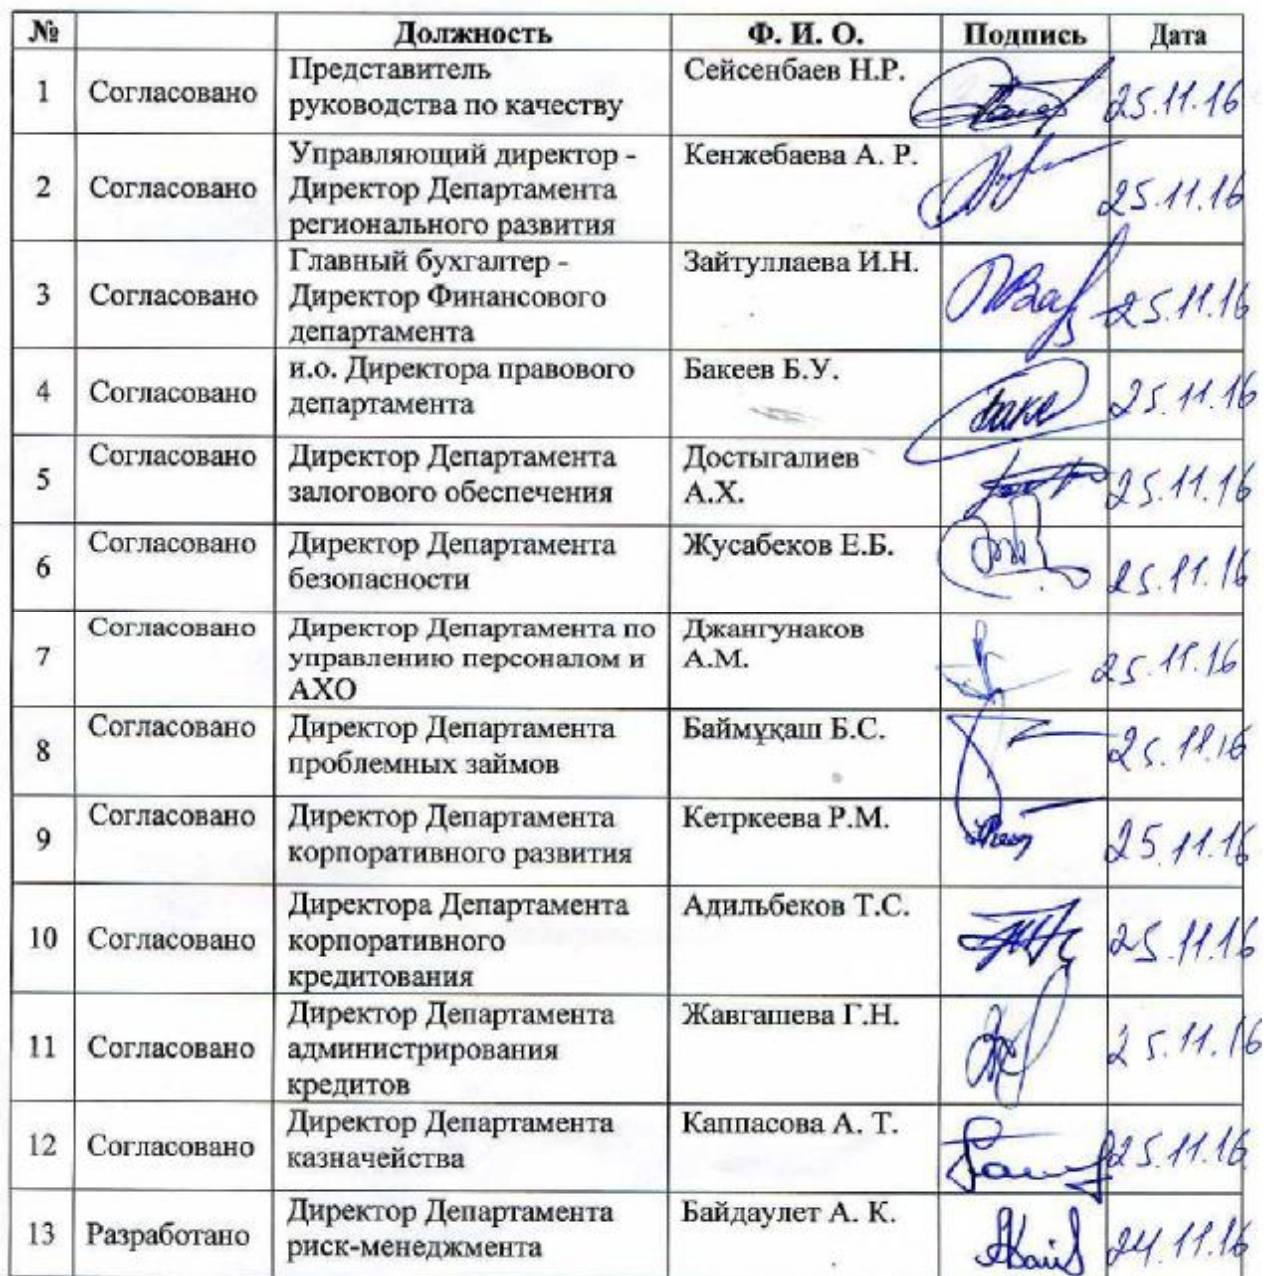 № Должность Ф. И. О. Подпись Дата
1 Согласовано Представитель руководства по качеству Сейсенбаев Н.Р. 25.11.16
2 Согласовано Управляющий директор - Директор Департамента регионального развития Кенжебаева А. Р. 25.11.16
3 Согласовано Главный бухгалтер - Директор Финансового департамента Зайтуллаева И.Н. 25.11.16
4 Согласовано и.о. Директора правового департамента Бакеев Б.У. 25.11.16
5 Согласовано Директор Департамента залогового обеспечения Достыгалиев А.Х. 25.11.16
6 Согласовано Директор Департамента безопасности Жусабеков Е.Б. 25.11.16
7 Согласовано Директор Департамента по управлению персоналом и АХО Джангунаков А.М. 25.11.16
8 Согласовано Директор Департамента проблемных займов Баймұқаш Б.С. 25.11.16
9 Согласовано Директор Департамента корпоративного развития Кетркеева Р.М. 25.11.16
10 Согласовано Директора Департамента корпоративного кредитования Адильбеков Т.С. 25.11.16
11 Согласовано Директор Департамента администрирования кредитов Жавгашева Г.Н. 25.11.16
12 Согласовано Директор Департамента казначейства Каппасова А. Т. 25.11.16
13 Разработано Директор Департамента риск-менеджмента Байдаулет А. К. 24.11.16